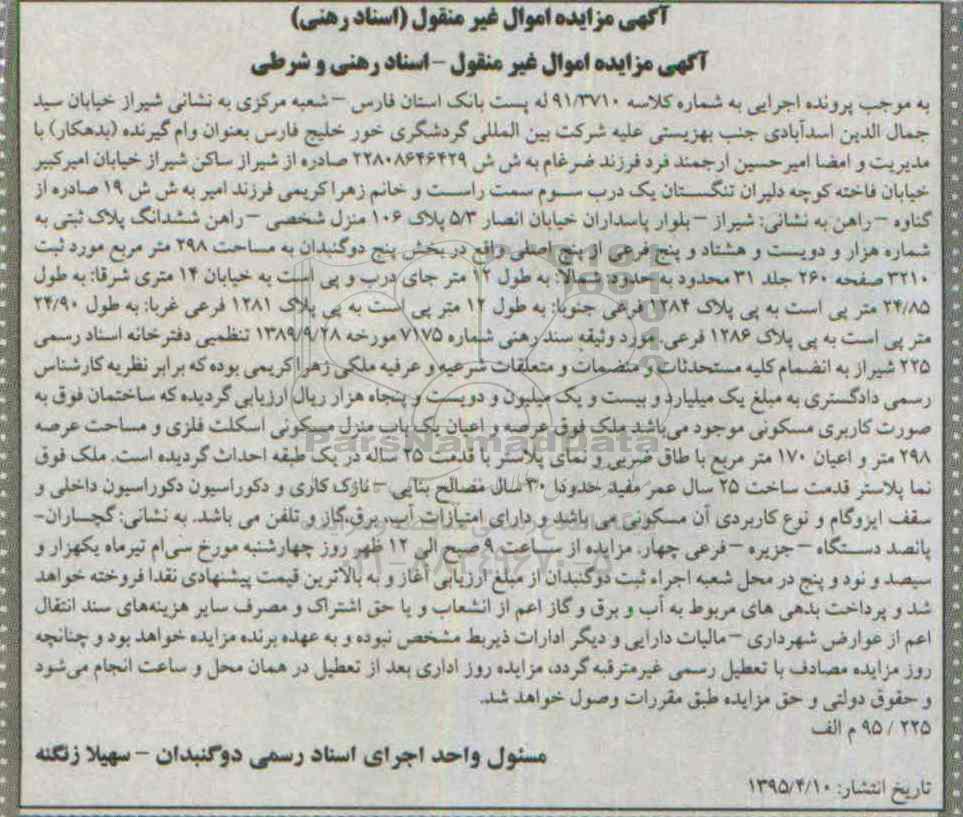 آگهی مزایده اموال غیر منقول (اسناد رهنی)
آگهی مزایده اموال غیر منقول - اسناد رهنی و شرطی
به موجب پرونده اجرایی به شماره کلاسه ۹۱/۳۷۱۰ له پست بانک استان فارس - شعبه مرکزی به نشانی شیراز خیابان سید
جمال الدین اسدآبادی جنب بهزیستی علیه شرکت بین المللی گردشگری خور خلیج فارس بعنوان وام گیرنده (بدهکار) با
مدیریت و امضا امیرحسین ارجمند فرد فرزند ضرغام به ش ش ۲۲۸۰۸۶۴۶۴۲۹ صادره از شیراز ساکن شیراز خیابان امیرکبیر
خیابان فاخته کوچه دلیران تنگستان یک درب سوم سمت راست و خانم زهرا کریمی فرزند امیر به ش ش ۱۹ صادره از
گناوه - راهن به نشانی: شیراز - بلوار پاسداران خیابان انصار ۵/۳ پلاک ۱۰۶ منزل شخصی - راهن ششدانگ پلاک ثبتی به
شماره هزار و دویست و هشتاد و پنج فرعی از پنج اصلی واقع در بخش پنج دوگنبدان به مساحت ۲۹۸ متر مربع مورد ثبت
۳۲۱۰ صفحه ۲۶۰ جلد ۳۱ محدود به حدود: شمالا: به طول ۱۲ متر جای درب و پی است به خیابان ۱۴ متری شرقا: به طول
۲۴/۸۵ متر پی است به پی پلاک ۱۲۸۴ فرعی جنوبا: به طول ۱۲ متر پی است به پی پلاک ۱۲۸۱ فرعی غربا: به طول ۲۴/۹۰
متر پی است به پی پلاک ۱۲۸۶ فرعی. مورد وثیقه سند رهنی شماره ۷۱۷۵ مورخه ۱۳۸۹/۹/۲۸ تنظیمی دفترخانه اسناد رسمی
۲۲۵ شیراز به انضمام کلیه مستحدثات و منضمات و متعلقات شرعیه و عرفیه ملکی زهرا کریمی بوده که برابر نظریه کارشناس
رسمی دادگستری به مبلغ یک میلیارد و بیست و یک میلیون و دویست و پنجاه هزار ریال ارزیابی گردیده که ساختمان فوق به
صورت کاربری مسکونی موجود می‌باشد ملک فوق عرصه و اعیان یک باب منزل مسکونی اسکلت فلزی و مساحت عرصه
۲۹۸ متر و اعیان ۱۷۰ متر مربع با طاق ضربی و نمای پلاستر با قدمت ۲۵ ساله در یک طبقه احداث گردیده است. ملک فوق
نما پلاستر قدمت ساخت ۲۵ سال عمر مفید حدودا ۳۰ سال مصالح بنایی - نازک کاری و دکوراسیون دکوراسیون داخلی و
سقف ایزوگام و نوع کاربردی آن مسکونی می باشد و دارای امتیازات آب، برق، گاز و تلفن می باشد. به نشانی: گچساران-
پانصد دستگاه - جزیره - فرعی چهار. مزایده از ساعت ۹ صبح الی ۱۲ ظهر روز چهارشنبه مورخ سی‌ام تیرماه یکهزار و
سیصد و نود و پنج در محل شعبه اجراء ثبت دوگنبدان از مبلغ ارزیابی آغاز و به بالاترین قیمت پیشنهادی نقدا فروخته خواهد
شد و پرداخت بدهی های مربوط به آب و برق و گاز اعم از انشعاب و یا حق اشتراک و مصرف سایر هزینه‌های سند انتقال
اعم از عوارض شهرداری - مالیات دارایی و دیگر ادارات ذیربط مشخص نبوده و به عهده برنده مزایده خواهد بود و چنانچه
روز مزایده مصادف با تعطیل رسمی غیرمترقبه گردد، مزایده روز اداری بعد از تعطیل در همان محل و ساعت انجام می‌شود
و حقوق دولتی و حق مزایده طبق مقررات وصول خواهد شد.
۲۲۵ / ۹۵ م الف
مسئول واحد اجرای اسناد رسمی دوگنبدان - سهیلا زنگنه
تاریخ انتشار: ۱۳۹۵/۴/۱۰
ParsNamadData